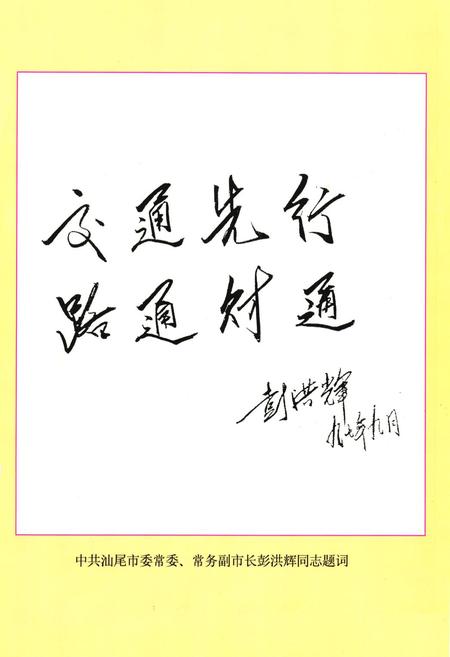 交通先行
路通财通
彭洪辉
九七年九月
中共汕尾市委常委、常务副市长彭洪辉同志题词